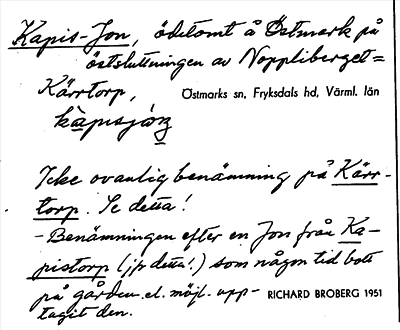 Kapis-Jon, ödetomt å Östmark på
östsluttningen av Noppliberget =
Kärrtorp,
Östmarks sn, Fryksdals hd, Värml. län
kàpisjóṇ
Icke ovanlig benämning på Kärr-
torp. Se detta!
- Benämningen efter en Jon från Ka-
pistorp (jfr detta!) som någon tid bott
på gården el. möjl. upp-
RICHARD BROBERG 1951
tagit den.